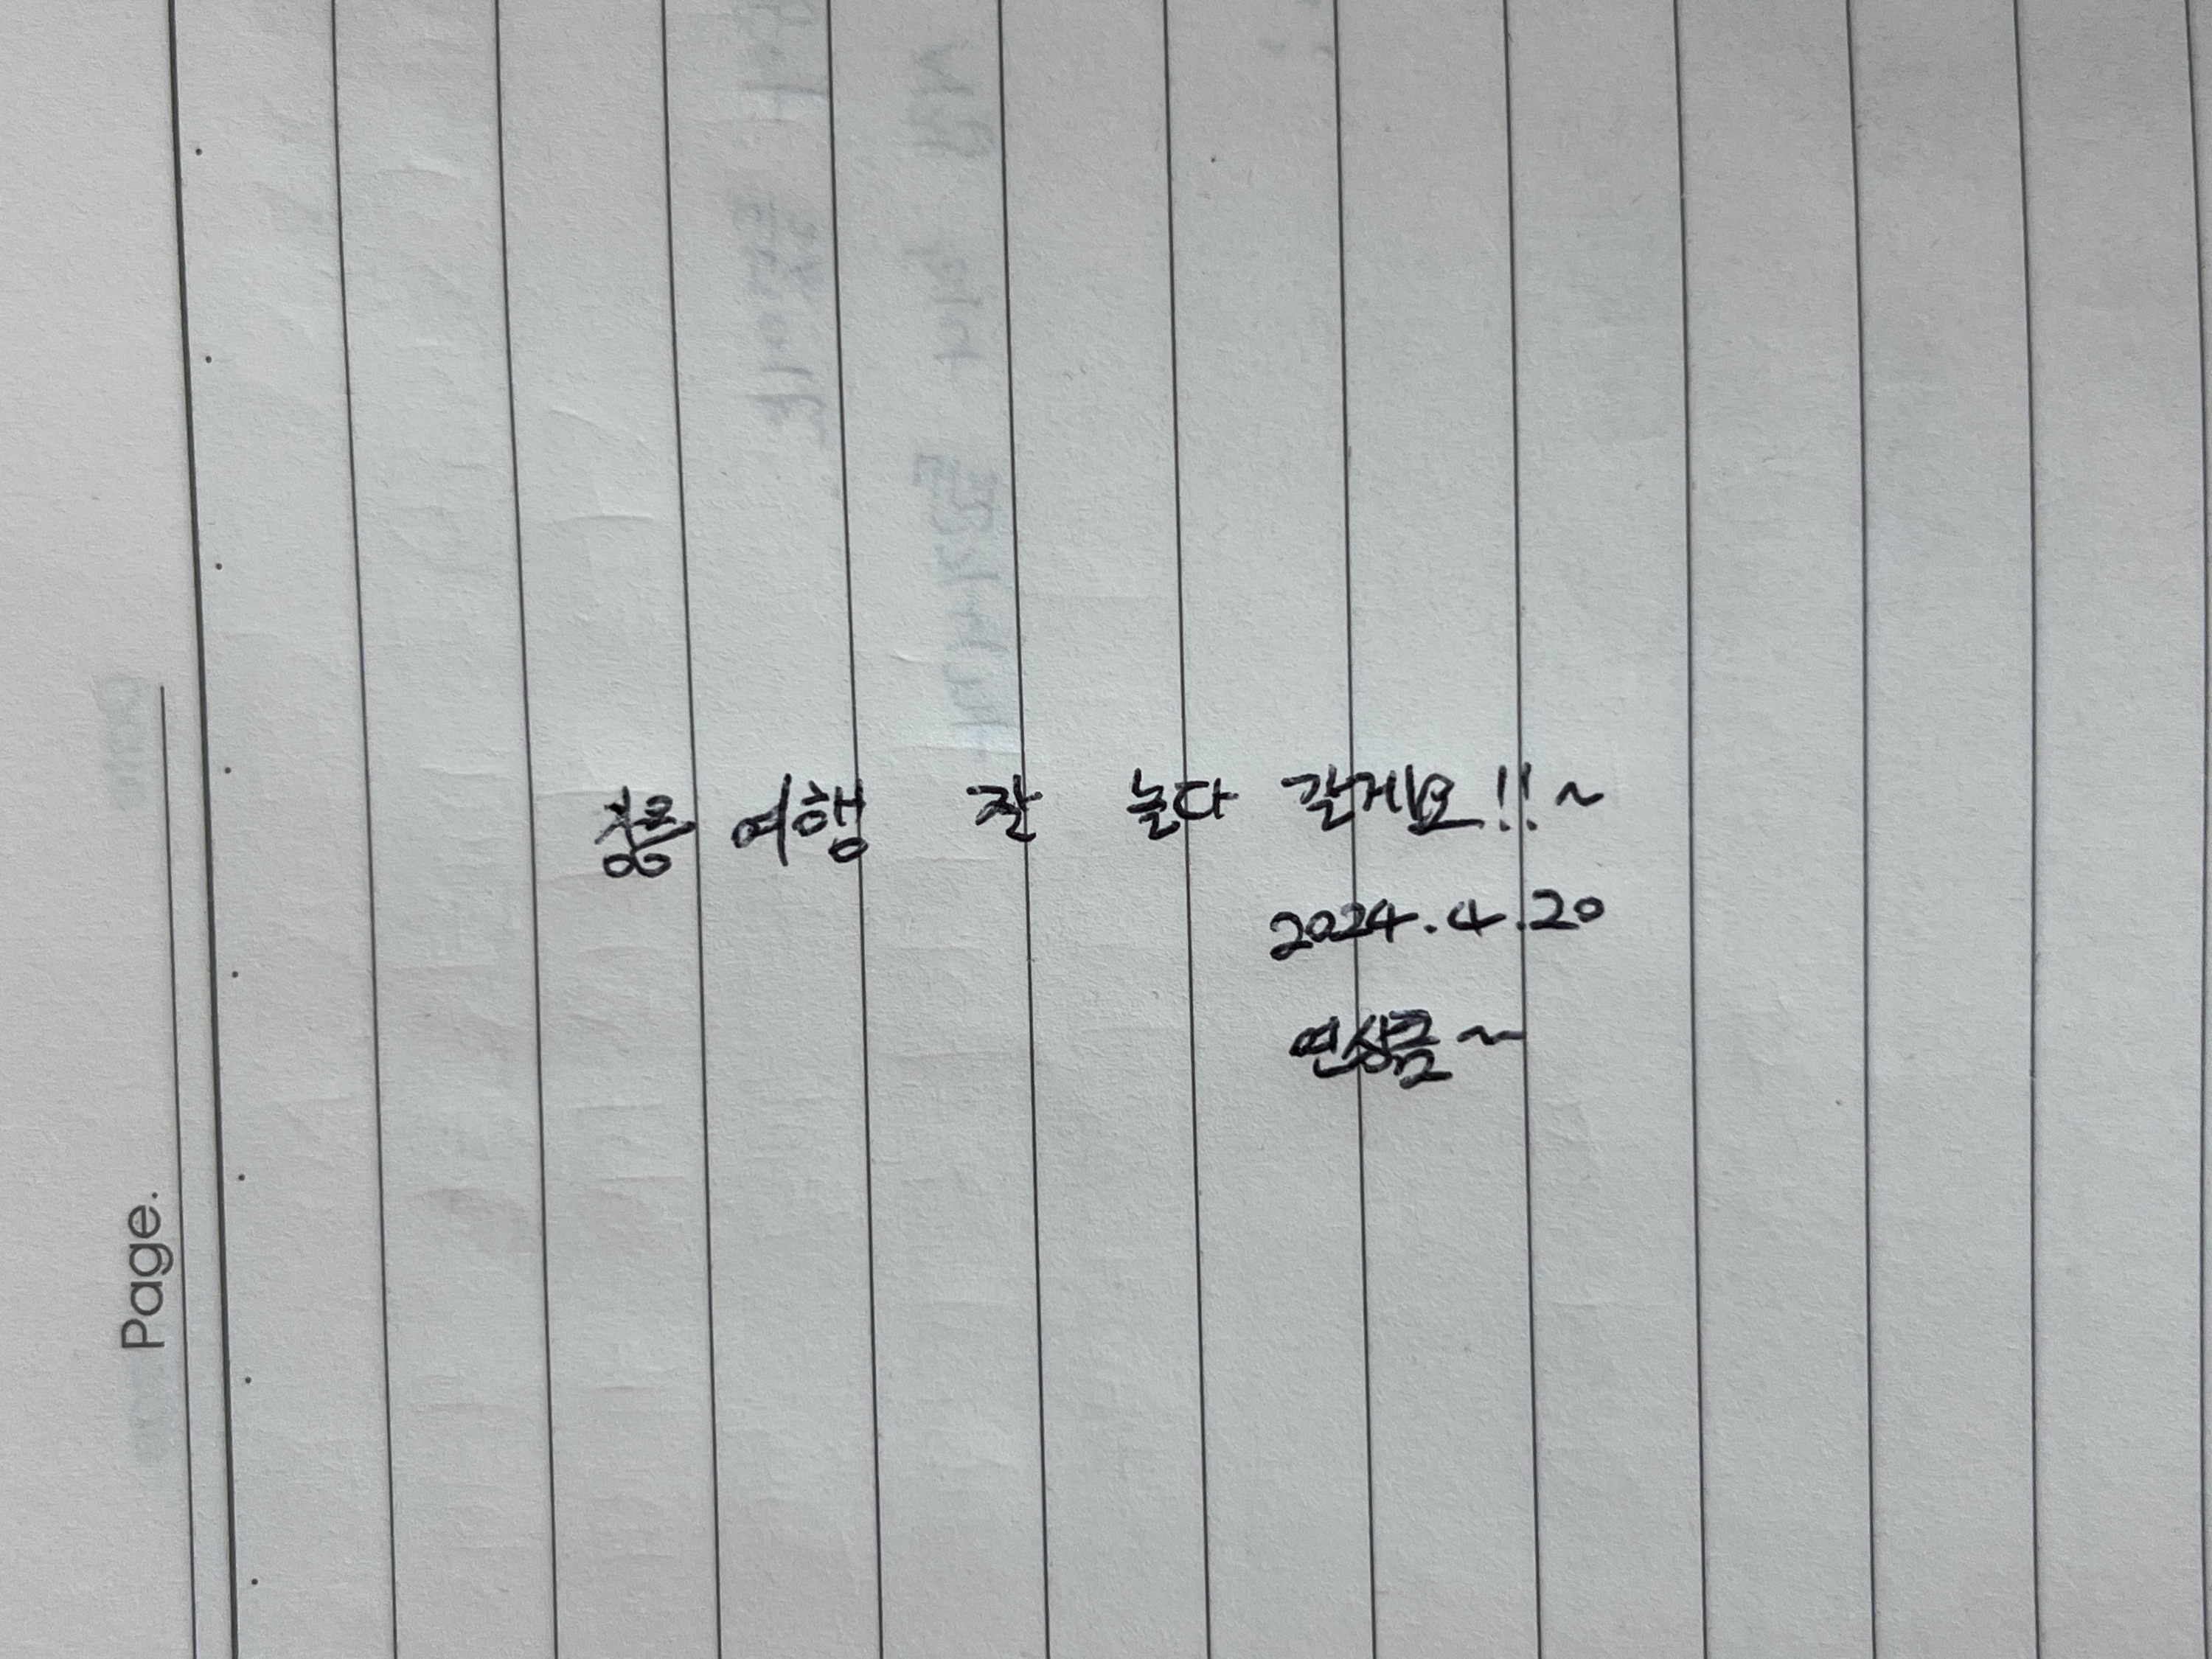 여행 잘 놀다 갈게요!!~
2024.4.20
연상금~
Page.